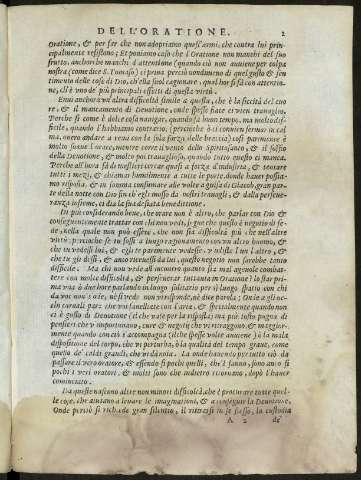 DELL'ORATIONE. 2
Oratione, & per far che non adopriamo quest'armi, che contra lui prin-
cipalmente resistono; Et poniamo caso che l'Oratione non manchi del suo
frutto, anchorche manchi d'attentione (quando ciò non auuiene per colpa
nostra (come dice S. Tomaso) ci priua però nondimeno di quel gusto & sen
timento delle cose di Dio, ch'ella suol cagionare, qual'hor si fà con attentio-
ne, ch'è vno de' più principali effetti di questa virtù.
Euui anchora vn'altra difficoltà simile a questa, che è la siccità del cuo
re, & il mancamento di Deuotione, onde spesse fiate ci vien trauaglio,
Perche si come è dolce cosa nauigar, quando fà buon tempo, ma molto dif-
ficile, quando l'habbiamo contrario, (percioche ò ti conuien fermar in cal
ma, ouero andare a remi con la sola forza delle braccia) così parimente è
molto soaue l'orare, mentre corre il vento dello Spiritosanto, & il soffio
della Deuotione, & molto poi trauaglioso, quando tutto questo ci manca.
Perche all'hora fà di mestieri cercar quasi a forza d'industria, & toccare
tutti i mezi, & chiamar humilmente a tutte le porte, donde hauer possiamo
risposta, & in somma consumare alle volte a guisa di Giacob, gran par-
te della notte con Dio fin ch'egli mosso da nostri trauagli, & dalla perseue-
ranza insieme, ci dia la sua desiata benedittione.
Di più considerando bene, che orare non è altro, che parlar con Dio &
conseguentemente trattar con chi non vedi, segue che questo è negotio di fe-
de, nella quale non può essere, che non sia difficoltà più che nell'altre
virtù: percioche se tu stessi a lungo ragionamento con vn altro huomo, &
che tu vedessi lui, & egli te parimente vedesse, & vdisse l'un l'altro, &
che tu gli dessi, & anco riceuessi da lui, questo negotio non sarebbe tanto
difficile. Ma chi non vede all'incontro quanto sia mal ageuole combat-
tere con molta difficoltà, & perseuerar tuttauia in Oratione? lo star pri-
ma vna ò due hore parlando in luogo solitario per sì lungo spatio con chi
da voi non s'ode, nè si vede non vi rispondendo due parole: Onde a gli oc-
chi carnali par che voi fauelliate con l'aere, & specialmente quando non
ci è gusto di Deuotione (il che vale per la risposta) ma più tosto pugna di
pensieri che v'importunano, cure & negotij che vi traggono & maggior-
mente quando con ciò s'accompagna (il che spesse volte auuiene) ò la mala
dispositione del corpo, che vi perturba, ò la grauezza del tempo graue, come
quello de' caldi grandi, che vi dà noia. La onde hauendo per tutto ciò da
passare i veri oratori, & essendo sì pochi quelli, che'l fanno, sono anco sì
pochi i veri oratori, & molti sono che indietro ritornano, dopò l'hauer
cominciato.
Da queste nascono altre non minori difficoltà, che è procurare tutte quel-
le cose, che aiutano a leuare le imaginationi, & a conseguir la Deuotione,
Onde perciò si richiede gran silentio, il ritirarsi in se stesso, la custodia
A 2 de'